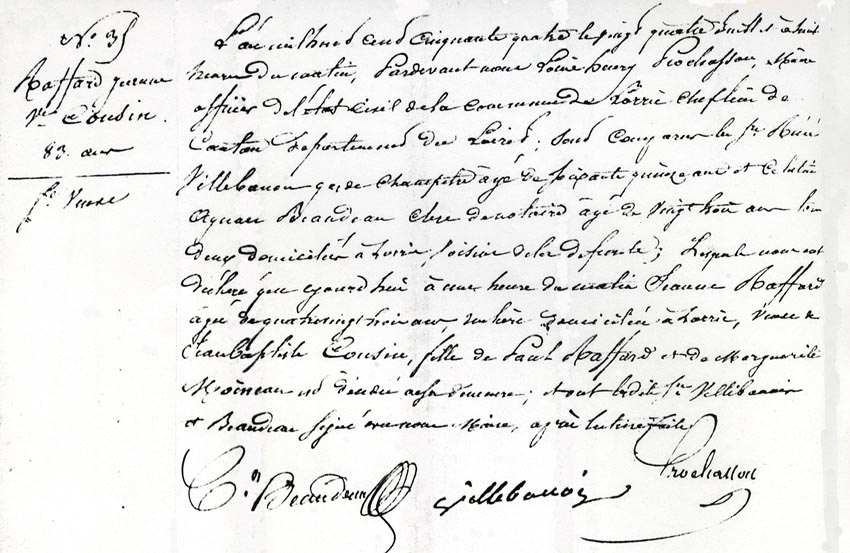 N.° 35
Raffard Jeanne
V.ve Cousin.
83. ans
f.e Veuve
L'an mil huit cent cinquante quatre le vingt quatre Juillet à huit
heures du matin, Pardevant nous Louis henry Prochasson, Maire
officier de l'état civil de la commune de Lorris chef lieu de
Canton Département du Loiret, sont comparus les S.rs René
Villebanoir garde champêtre agé de soixante quinze ans et Celestin
Aignan Beaudeau clerc de notaire âgé de vingt huit ans tous
deux domiciliés à Lorris, voisins de la défunte; Lesquels nous ont
déclaré que cejourd'hui à une heure du matin Jeanne Raffard
agée de quatre vingt trois ans, domiciliée à Lorris, Veuve de
Jean baptiste Cousin, fille de Paul Raffard et de Marguerite
Moineau est décédée en sa demeure; et ont lesdits S.rs Villebanoir
et Beaudeau signé avec nous Maire, après lecture faite
C.n Beaudeau Villebanoir Prochasson